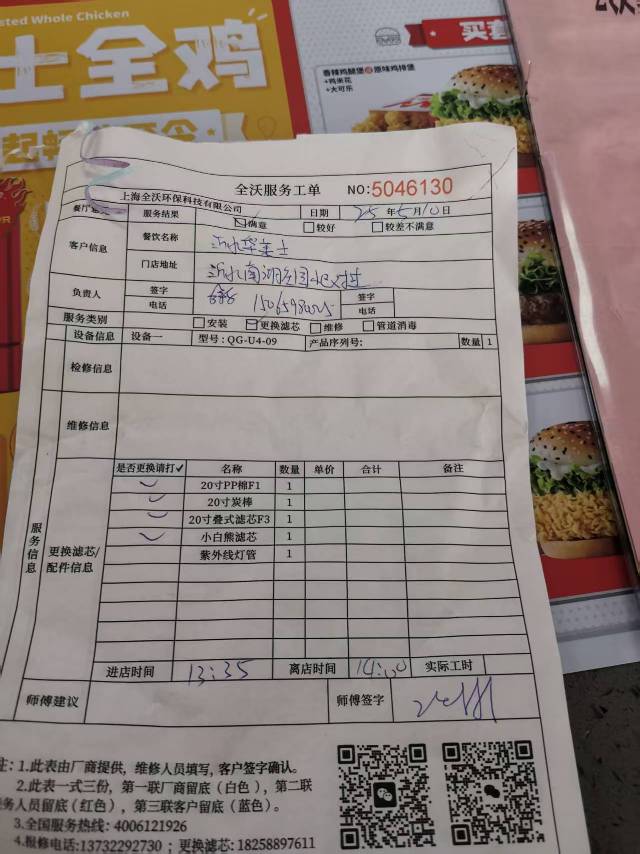 sted Whole Chicken
士全鸡
买套
香辣鸡腿堡或原味鸡排堡
+鸡米花
+大可乐
全沃服务工单 NO:5046130
上海全沃环保科技有限公司 日期 25年5月10日
服务结果 满意 较好 较差不满意
客户信息 餐饮名称
门店地址
负责人 签字 签字
电话 电话
服务类别 安装 更换滤芯 维修 管道消毒
设备信息 设备一 型号:QG-U4-09 产品序列号: 数量 1
检修信息
维修信息
服务信息
更换滤芯/配件信息
是否更换请打✓ 名称 数量 单价 合计 备注
20寸PP棉F1 1
20寸炭棒 1
20寸叠式滤芯F3 1
小白熊滤芯 1
紫外线灯管 1
进店时间 13:35 离店时间 14:00 实际工时
师傅建议 师傅签字
注:1.此表由厂商提供,维修人员填写,客户签字确认。
2.此表一式三份,第一联厂商留底(白色),第二联
务人员留底(红色),第三联客户留底(蓝色)。
3.全国服务热线:4006121926
4.报修电话:13732292730;更换滤芯:18258897611